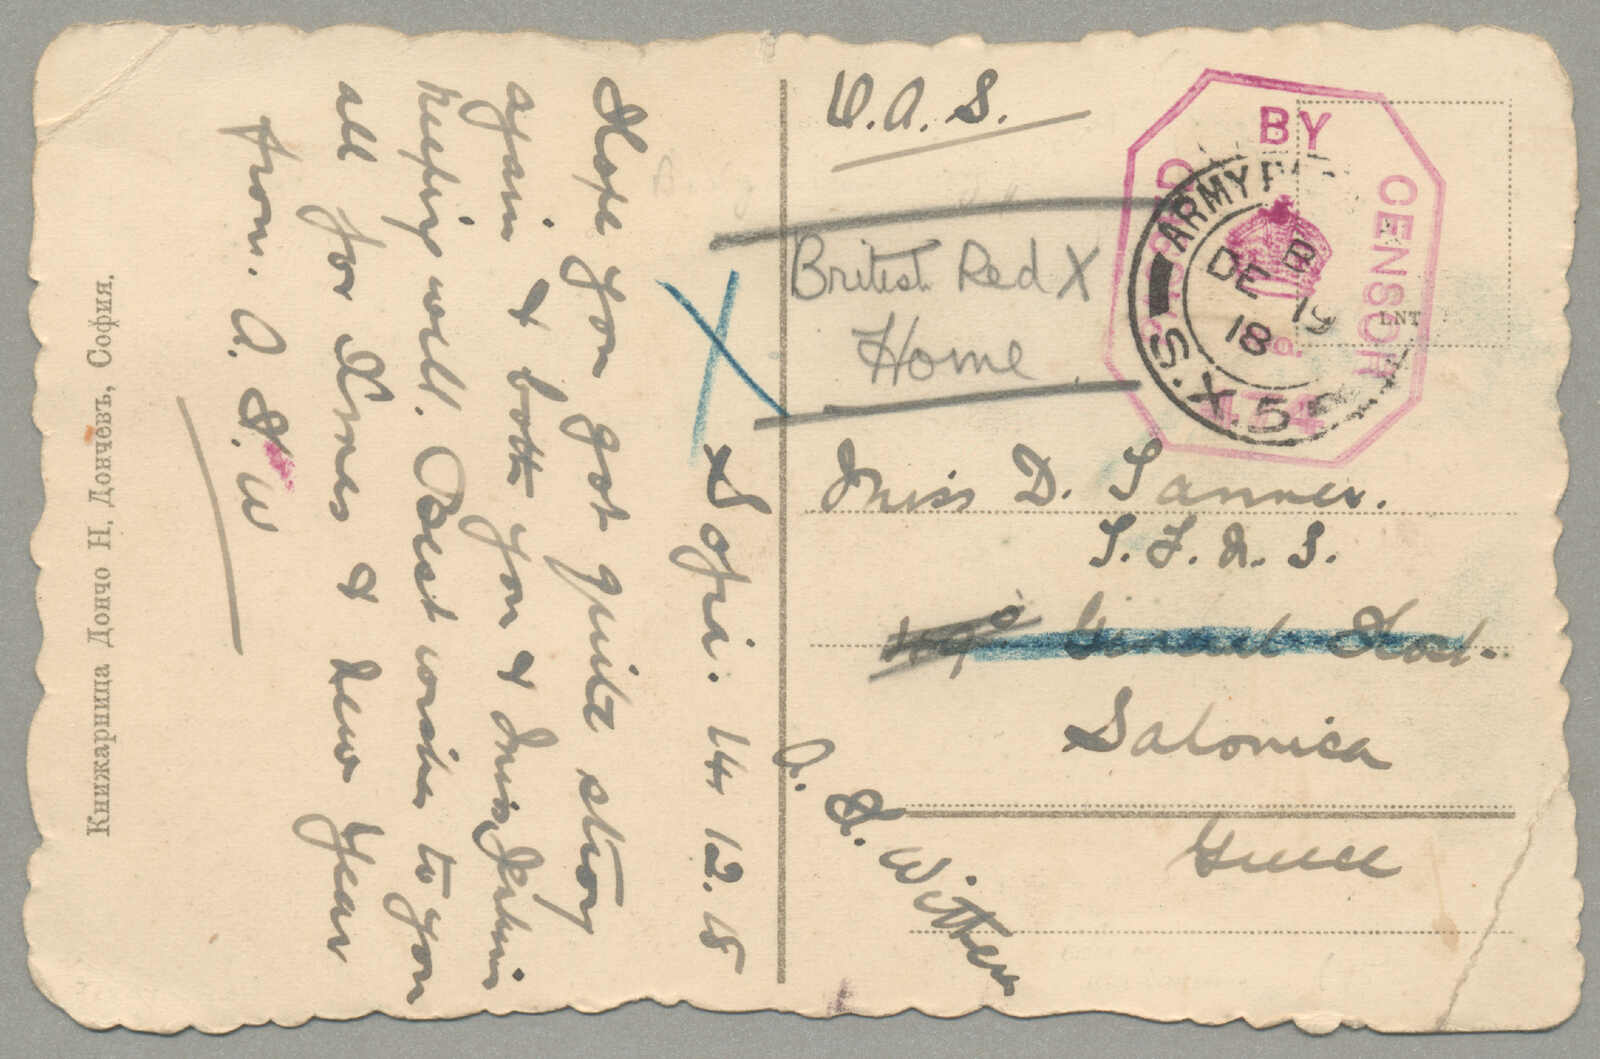 Sofia. 14 12.18
Hope you got quite strong
again & both you & Miss
keeping well. Best wishes to you
all for Xmas & New Year
from. A. H. W
Книжарница Дончо Н. Дончевъ, София.
O.A.S.
British Red X
Home
PASSED BY CENSOR
ARMY
DE
18
19
Miss D. Tanner.
General Hosp.
Salonica
Greece
A. H. Withers